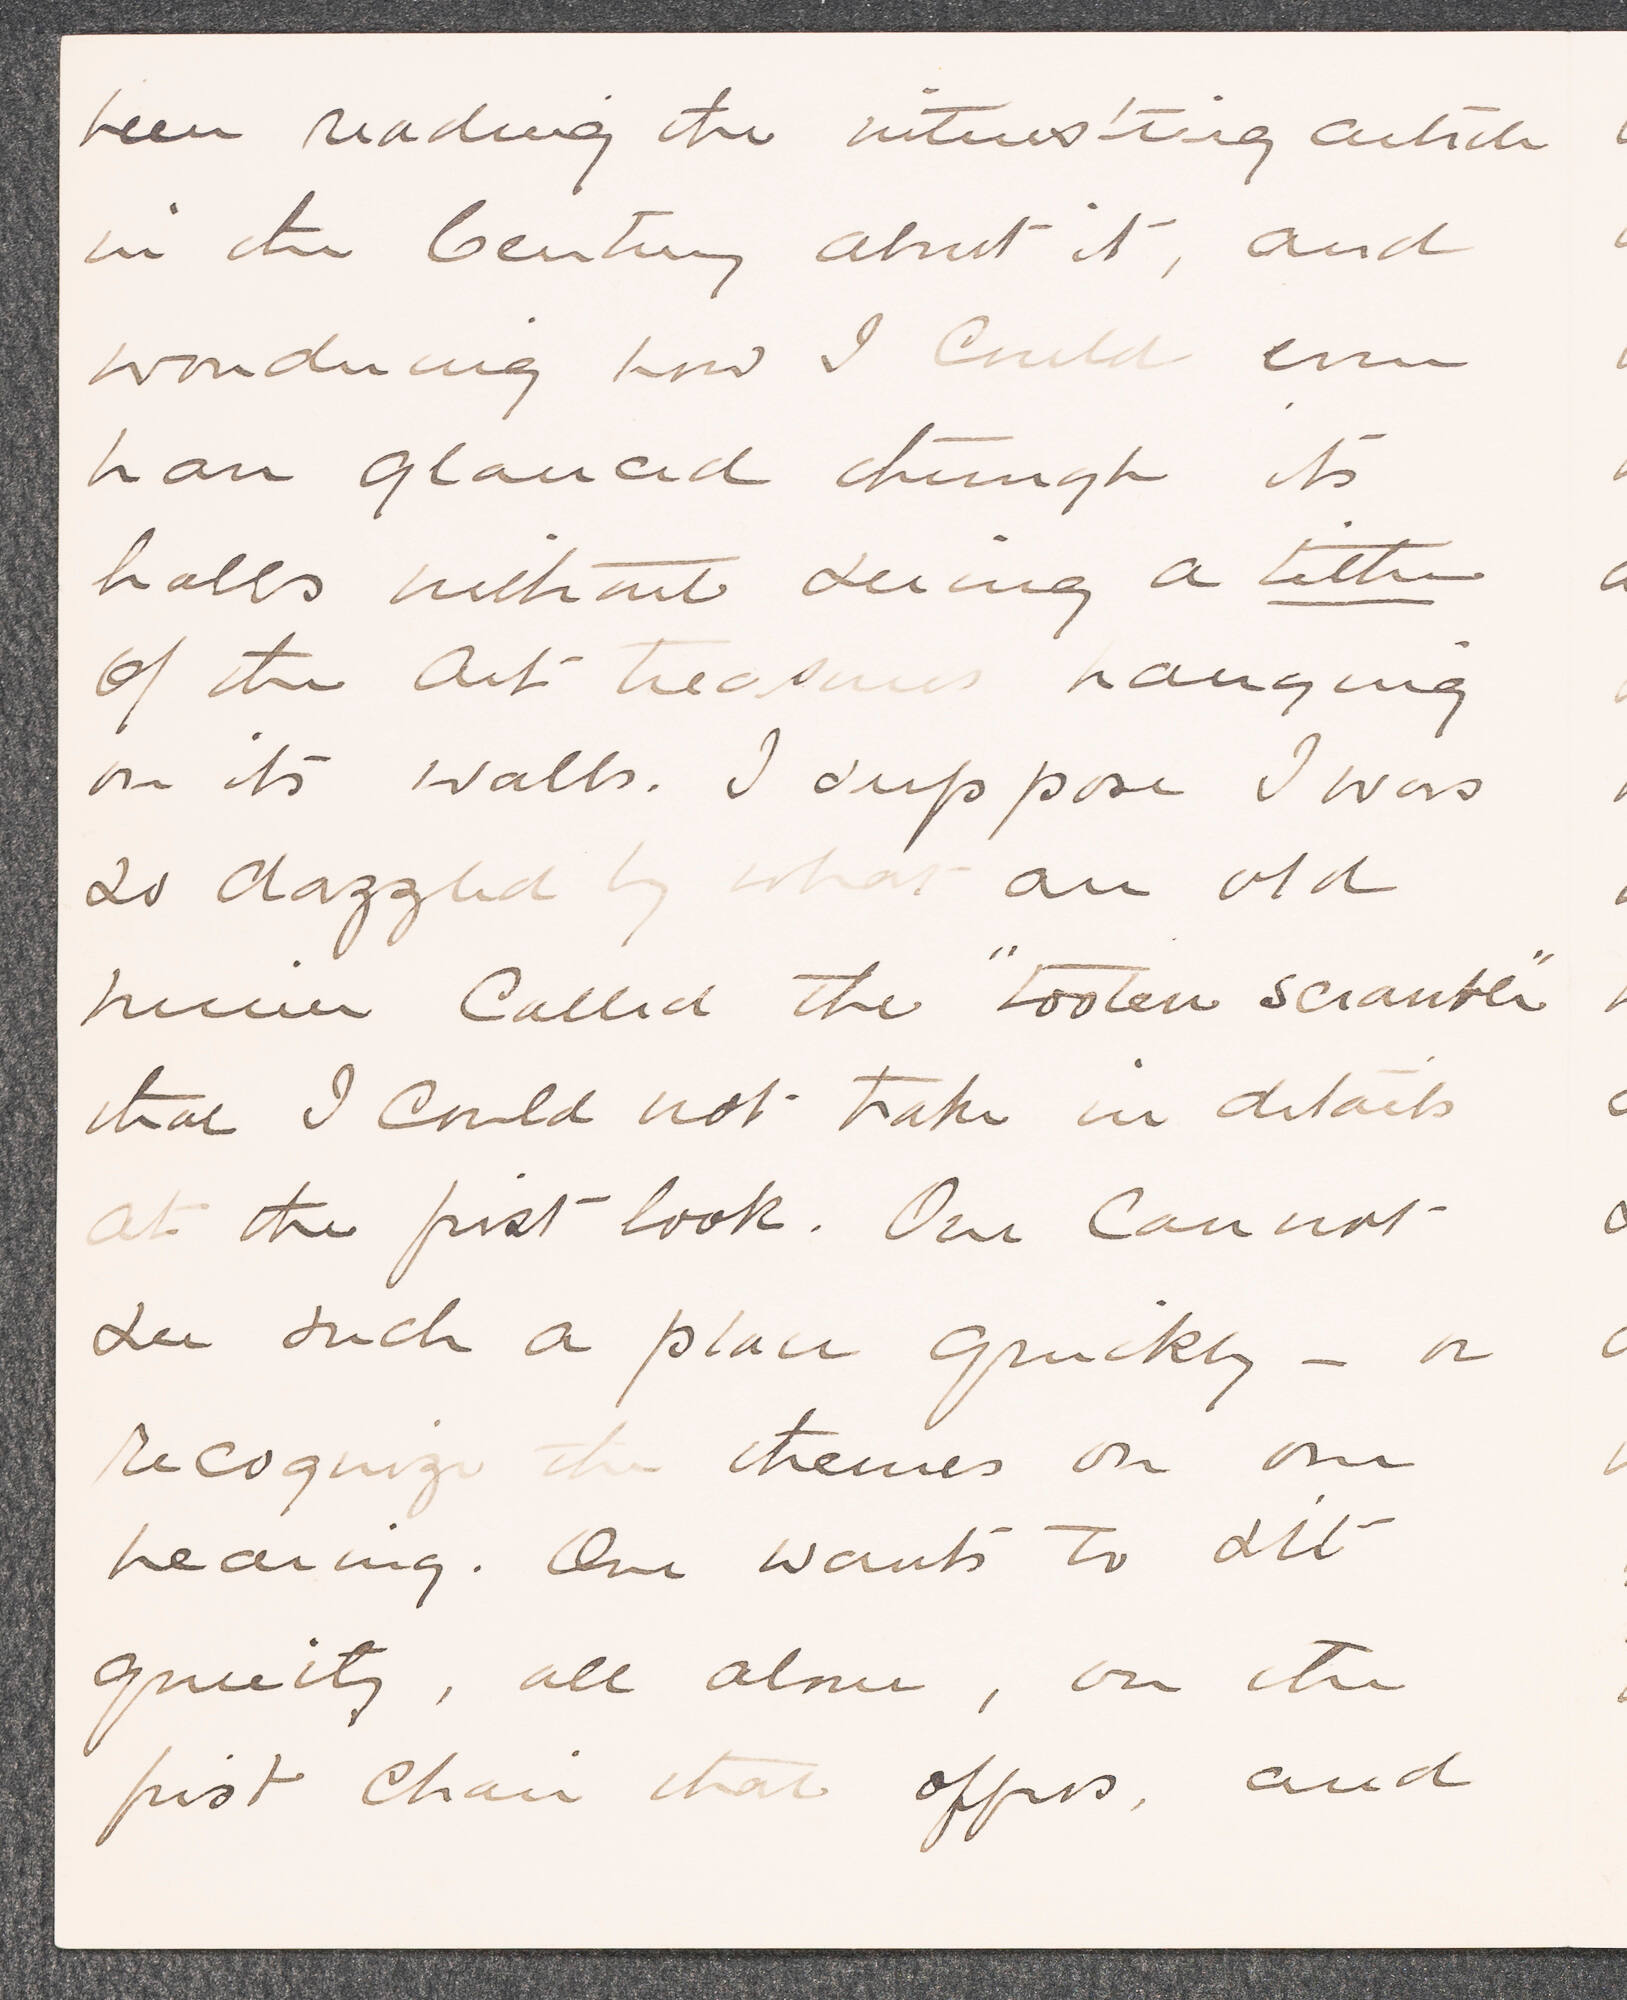 been reading the interesting article
in the Century about it, and
wondering how I could even
have glanced through its
halls without seeing a tithe
of the Art treasures hanging
on its walls. I suppose I was
so dazzled by what an old
miner called the "tooten scranble"
that I could not take in details
at the first look. One cannot
see such a place quickly – or
recognize the themes on one
hearing. One wants to sit
quietly, all alone, on the
first chair that offers, and